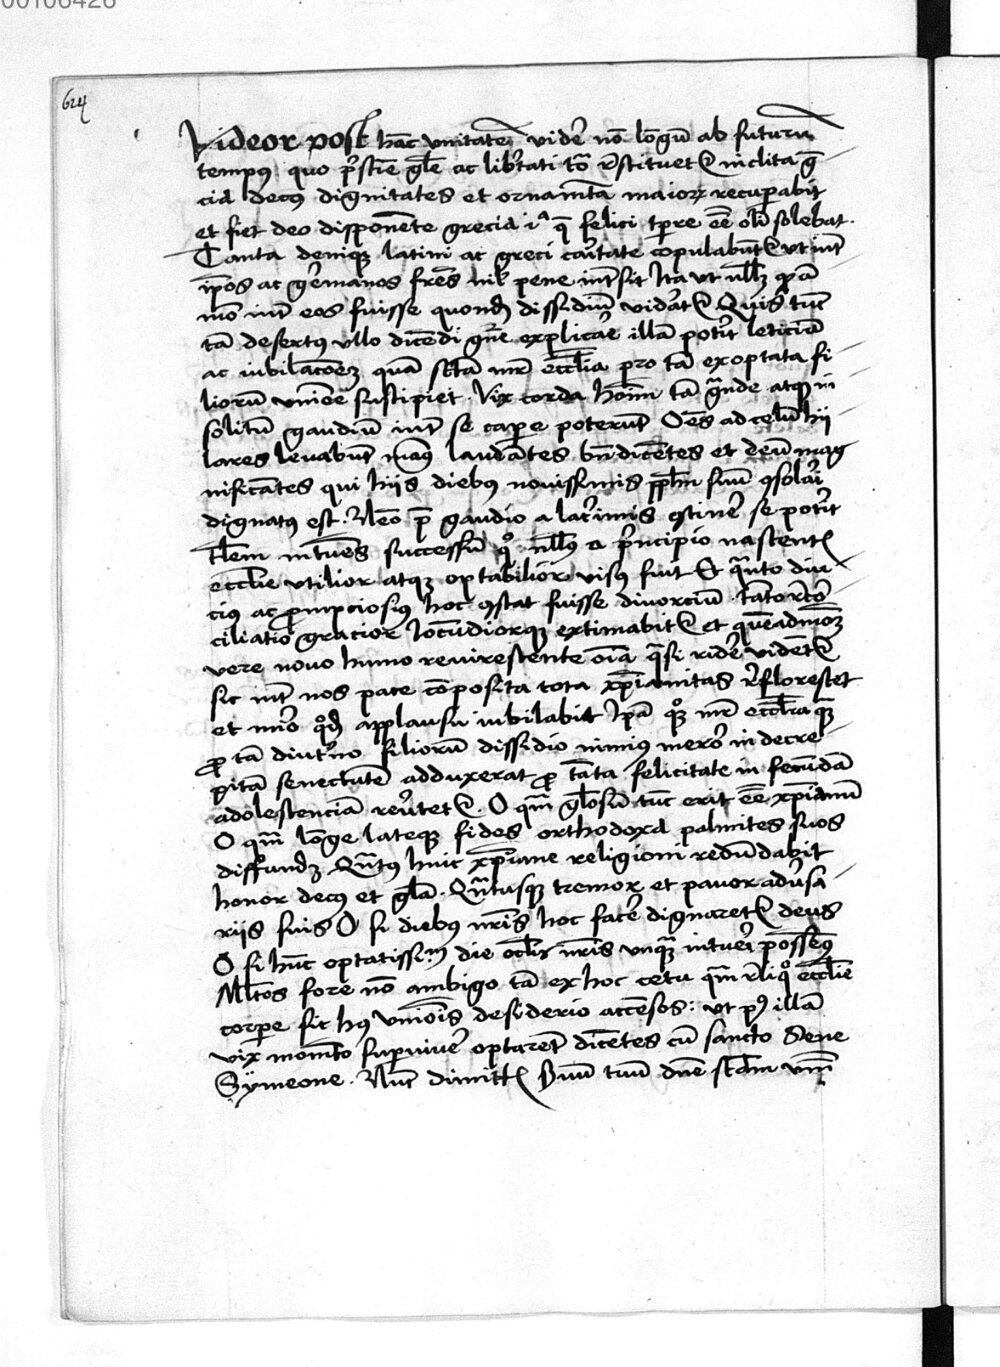 00106426
624
Videor post hāc vnitatē vidēr nō lōgū ab futurū
tempus quo p̄stīe gl̄e ac lib̄tati tō rēstituet᷑ inclita ḡ
cia decus dignitates et ornam̄ta maiorꝝ recuperabit
et fiet deo disponēte grecia iᵃ q̄ felici tp̄re eē olī solebat.
Tanta deniqꝫ latini ac greci cāritate copulabūt᷑ vt int̄
ip̄os ac ḡermanos fr̄es nil pene int̄sit Ita ut nll̄ꝫ
mō int̄ eos fuisse quondā dissidiū vidāt᷑ Quis tūc
tā desertus vllo dicēdi gn̄e explicāre illā potīt leticiā
ac iubilacōeꝫ quā sctā mr̄ eccl̄ia pro tā exoptata fi
liorū vniōe suscipiet. Vix corda hoīm tā grande atqꝫ in
solitū gaudiū int̄ se capere poterūt Oēs ad celū hii
lares levabūt man᷒ laudātes bn̄dicētes et deū mag
nificātes qui hiis diebus novissimis pplm̄ suū ꝯsolāri
dignatus est. Nēo p̄ gaudio a lac̄rimis ꝯtinēr se potīt
Tlem intuēs successū qͦ nll̄us a p̄ncipio nascent᷑
eccl̄ie vtilior atqꝫ optabilior visus fuit Et q̄nto diu
cius ac ꝑnipciosius hoc ꝯstat fuisse divorciū tāto rēcō
ciliatio gracior Iocūdiorqꝫ extimabit᷑ et quēadmodū
vere novo humo revirescente oīa q̄si ridēr vidēt᷑
sic int̄ nos pace cōposita tota xp̄ianitas rēflorescet
et mīro qͦdā applausu iubilabit Ip̄a qͦꝫ mr̄ eccl̄ia quā
ꝓ tā diut̄no filiorū dissidio nimius meror in decre
pitā senectutē adduxerat ꝓ tāta felicitate in fecūdā
adolescenciā rēvtet᷑. O qm̄ gl̄osū tūc erit eē xp̄ianū
O qm̄ lōge lateqꝫ fides orthodoxa palmites suos
diffundꝫ Qn̄tus huic xp̄iane religioni redūdabit
honor decus et gl̄a. Qn̄tusqꝫ tremor et pavor adv̄sa
riis suis O si diebus nr̄is hoc facēr dignaret᷑ deus
O si hūc optatissim̄ diē oclīs nr̄is vnqꝫ intuēri possem᷒
Mltōs fore nō ambigo tā ex hoc cetu qm̄ rēliqͦ eccl̄ie
corpe sic hus vniōis desiderio accēsos: vt pꝰ illā
vix momēto supvivēr optarēt dicētes cū sancto Sene
Symeone. Nūc dimitt᷑ Svuū tuū dn̄e scdm vm̄